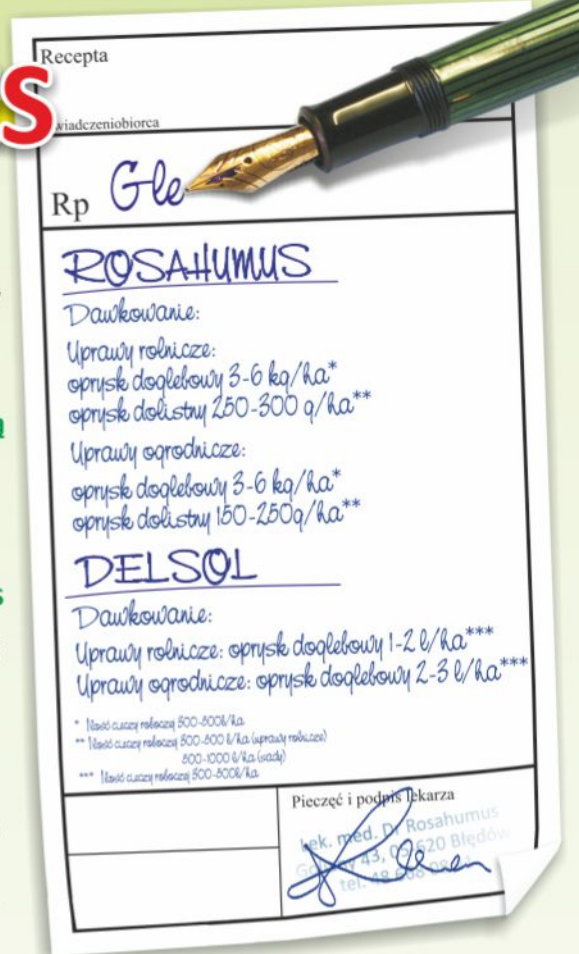 S
Recepta
wiadczeniobiorca
Rp Gle
ROSAHUMUS
Dawkowanie:
Uprawy rolnicze:
oprysk doglebowy 3-6 kg/ha*
oprysk dolistny 250-300 g/ha**
Uprawy ogrodnicze:
oprysk doglebowy 3-6 kg/ha*
oprysk dolistny 150-250g/ha**
DELSOL
Dawkowanie:
Uprawy rolnicze: oprysk doglebowy 1-2 l/ha***
Uprawy ogrodnicze: oprysk doglebowy 2-3 l/ha***
* Ilość cieczy roboczej 300-500l/ha
** Ilość cieczy roboczej (uprawy rolnicze)
500-1000 l/ha (sady)
*** Ilość cieczy roboczej 300-500l/ha
Pieczęć i podpis lekarza
Lek. med. Dr Rosahumus
43, 05-620 Błędów
tel. 48 668